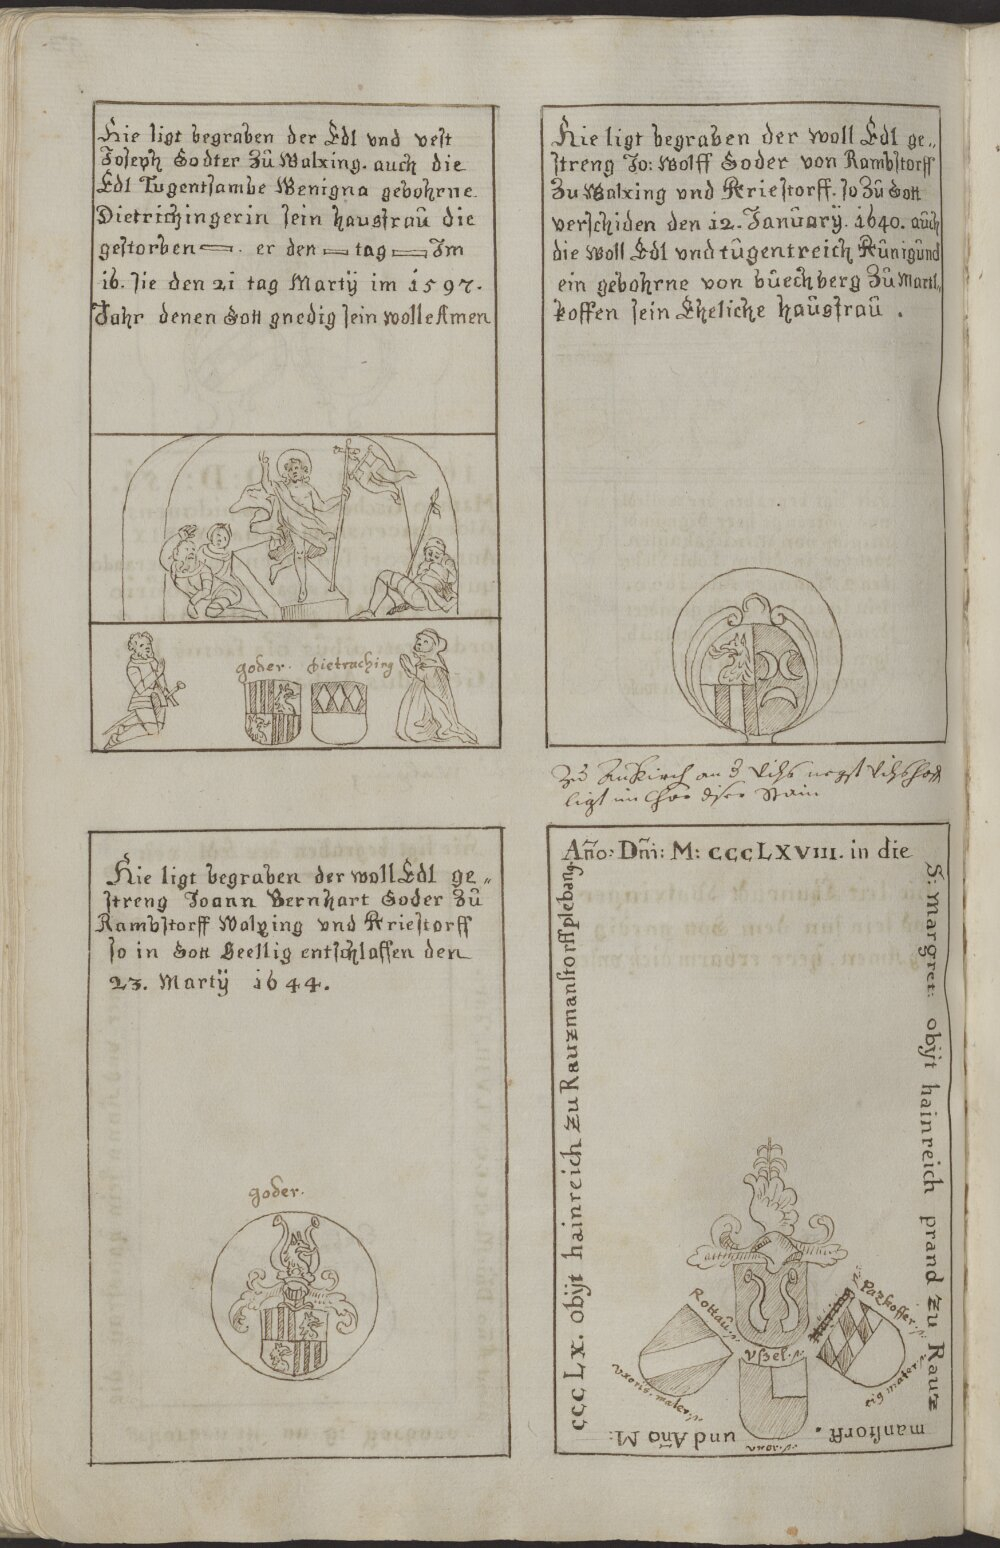 Hie ligt begraben der Edl vnd vest
Joseph Godter Zů Walxing. auch die
Edl Tugentsambe Benigna gebohrne
Dietrichingerin sein hausfraů die
gestorben er den tag Im
16. sie den 21 tag Martÿ im 1597.
Jahr denen Gott gnedig sein wolle Amen
goder. dietraching
Hie ligt begraben der woll Edl ge„
streng Jo: Wolff Goder von Rambstorff
Zu Walxing vnd Kriestorff. so Zů Gott
verschiden den 12. Janůarÿ. 1640. aůch
die woll Edl vnd tůgentreich Kůnigůnd
ein gebohrne von bůechberg Zů Martl„
koffen sein Eheliche haůsfraů .
ligt im Chor diser Stain
Hie ligt begraben der woll Edl ge„
streng Joann Bernhart Goder Zů
Rambstorff Walxing vnd Kriestorff
so in Gott Seellig entschlaffen den
23. Martÿ 1644.
goder.
Año: Dñi: M: cccLXVIII. in die
S: Margret: obÿt hainreich prand zu Rauz
manstorff.
und Año M:
cccLx. obÿt hainreich zu Rauzmanstorff plebang
Rottaů:
Pazkoffer:
vxoris mater
vßel